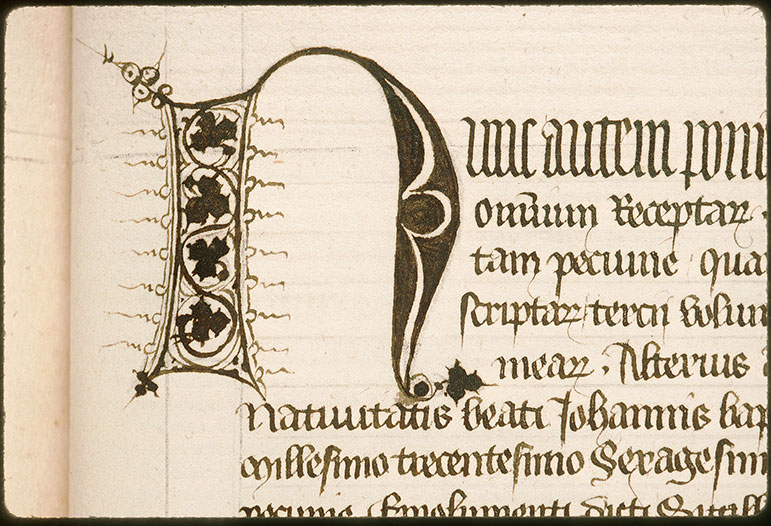 Nunc autem poni
om̄ium Receptar
tam pecunie qua
scriptar tercii volum
mear. Alterius
Nativitatis beati Johannis bap
millesimo trecentesimo Sexagesim
pecunie Emolumenti dicti Sigill